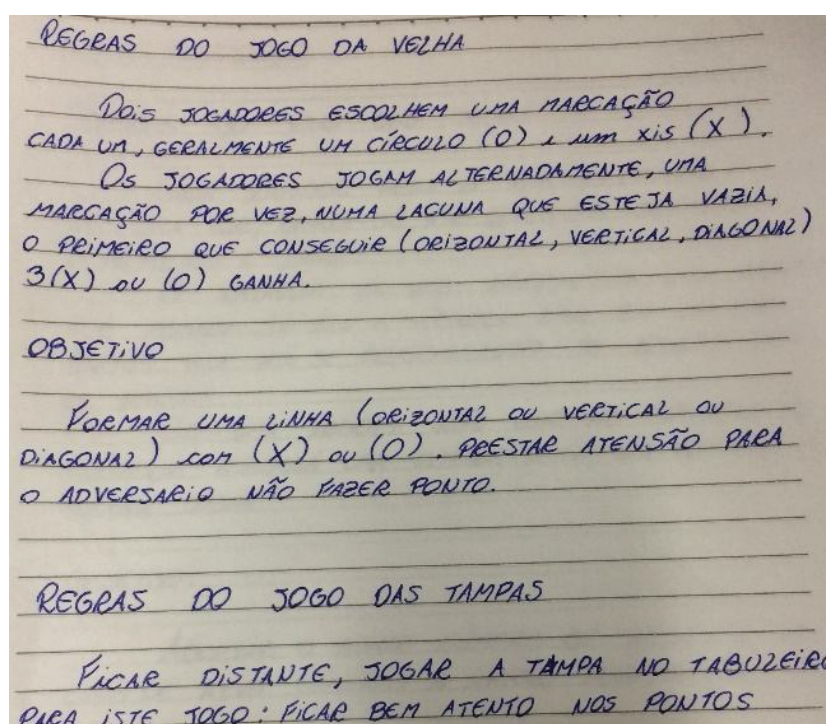 REGRAS DO JOGO DA VELHA
Dois JOGADORES ESCOLHEM UMA MARCAÇÃO
CADA UM, GERALMENTE UM CÍRCULO (O) e um xis (X).
OS JOGADORES JOGAM ALTERNADAMENTE, UMA
MARCAÇÃO POR VEZ, NUMA LACUNA QUE ESTEJA VAZIA,
O PRIMEIRO QUE CONSEGUIR (ORIZONTAL, VERTICAL, DIAGONAL)
3(X) OU (O) GANHA.
OBJETIVO
FORMAR UMA LINHA (ORIZONTAL OU VERTICAL OU
DIAGONAL) com (X) OU (O). PRESTAR ATENSÃO PARA
O ADVERSARIO NÃO FAZER PONTO.
REGRAS DO JOGO DAS TAMPAS
FICAR DISTANTE, JOGAR A TAMPA NO TABULEIRO
PARA ISTE JOGO: FICAR BEM ATENTO NOS PONTOS